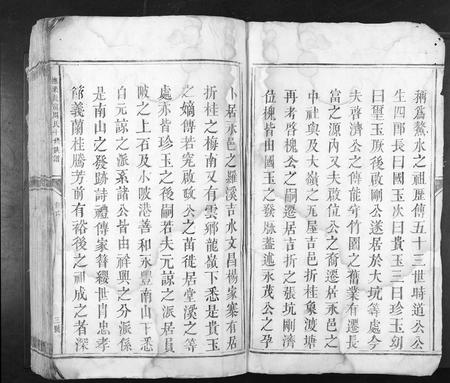 稱爲鰲水之祖歷傳五十三世時道公公
生四郎長曰國玉次曰貴玉三曰珍玉幼
曰璧玉厥後啟剛公遂居於大坑等處今
夫啓濟公之傳龍斾竹園之舊業有遷長
富之源內又夫啟位公之裔遷居永邑之
中社與及大嶺之瓦屋吉邑折桂象渡塘
再考啓槐公之嗣遷居吉折之張坑剛濟
位槐皆由國玉之發脉蓋述永茂公之孕
卜居永邑之羅溪吉水文昌楊家寨有居
折桂之梅南又有雲鄉龍嶽下悉是貴玉
之嫡傳若究啟公之苗徙居堂溪之等
處亦皆珍玉之後嗣若夫元諒之派居員
陂之上石及小陂港善和永豐南山下悉
自元諒之派系諸公皆由祥興之分派係
是南山之發跡詩禮傳家簪纓世胄忠孝
節義蘭桂騰芳前有裕後之祖成之者深